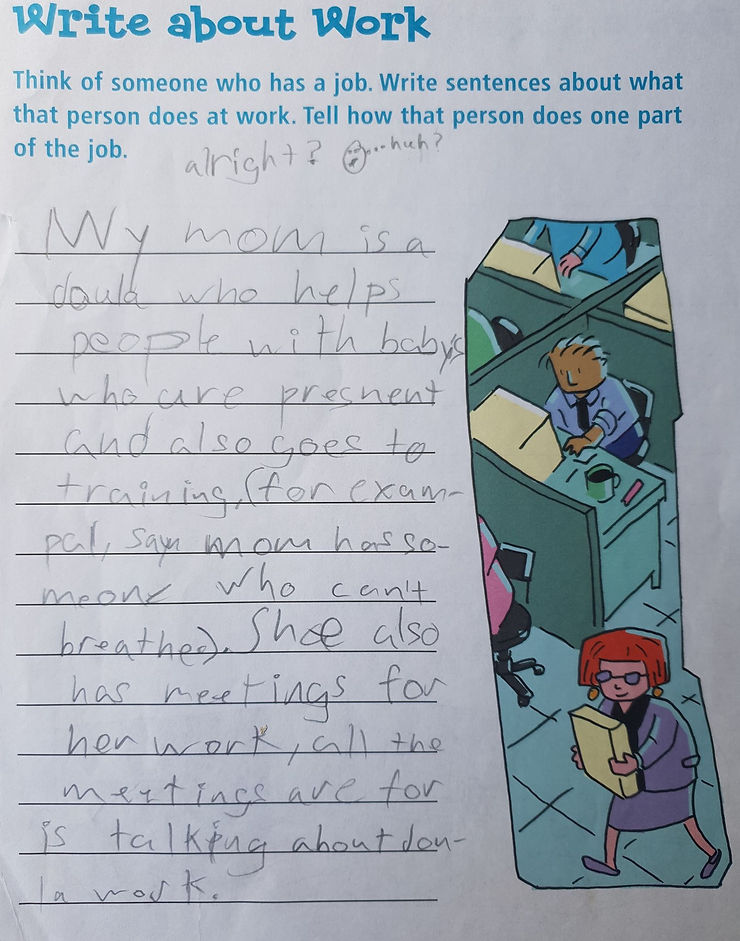 Write about Work
Think of someone who has a job. Write sentences about what
that person does at work. Tell how that person does one part
of the job.
alright? ...huh?
My mom is a
doula who helps
people with baby's
who are presnent
and also goes to
training, (for exam-
pal, say mom has so-
meone who can't
breathe). She also
has meetings for
her work, all the
meetings are for
is talking about dou-
la work.